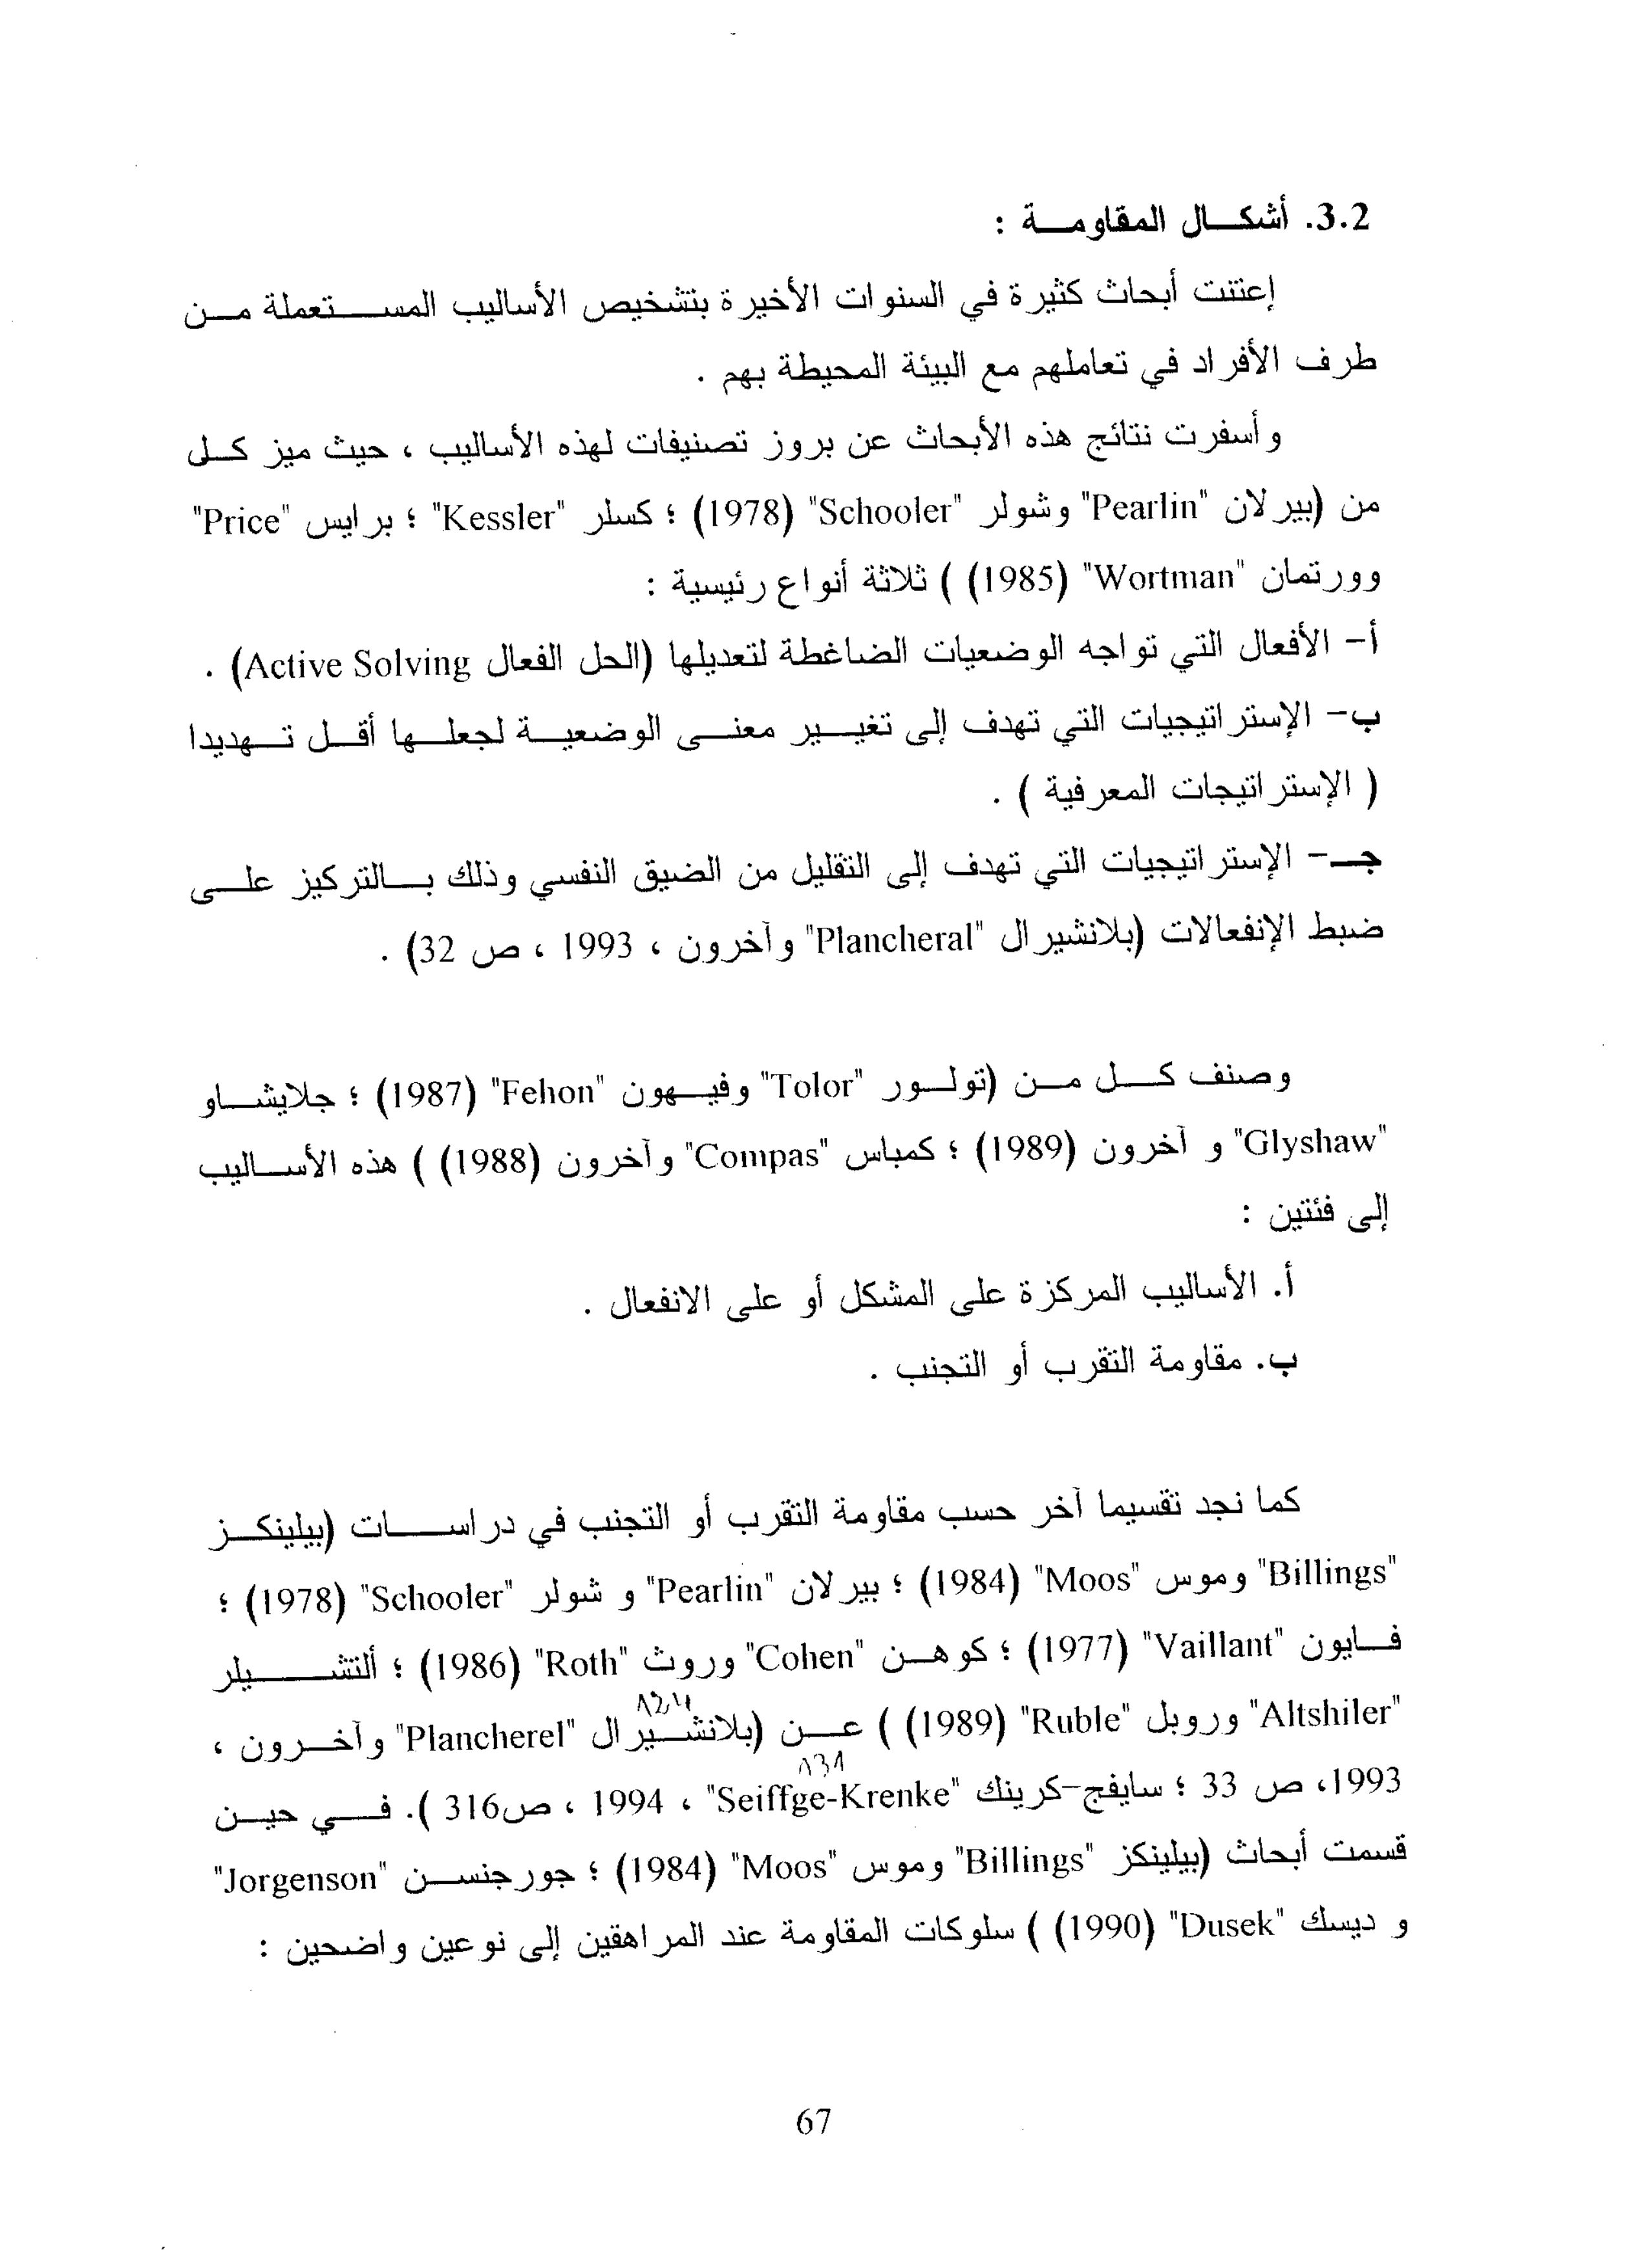 3.2. أشكال المقاومة :
إعتنت أبحاث كثيرة في السنوات الأخيرة بتشخيص الأساليب المستعملة من
طرف الأفراد في تعاملهم مع البيئة المحيطة بهم .
وأسفرت نتائج هذه الأبحاث عن بروز تصنيفات لهذه الأساليب ، حيث ميز كل
من (بيرلان "Pearlin" وشولر "Schooler" (1978) ؛ كسلر "Kessler" ؛ برايس "Price"
وورتمان "Wortman" (1985) ) ثلاثة أنواع رئيسية :
أ- الأفعال التي تواجه الوضعيات الضاغطة لتعديلها (الحل الفعال Active Solving) .
ب- الإستراتيجيات التي تهدف إلى تغيير معنى الوضعية لجعلها أقل تهديدا
( الإستراتيجات المعرفية ) .
جـ- الإستراتيجيات التي تهدف إلى التقليل من الضيق النفسي وذلك بالتركيز على
ضبط الإنفعالات (بلانشيرال "Plancheral" وآخرون ، 1993 ، ص 32) .
وصنف كل من (تولور "Tolor" وفيهون "Fehon" (1987) ؛ جلايشاو
"Glyshaw" و آخرون (1989) ؛ كمباس "Compas" وآخرون (1988) ) هذه الأساليب
إلى فئتين :
أ. الأساليب المركزة على المشكل أو على الانفعال .
ب. مقاومة التقرب أو التجنب .
كما نجد تقسيما آخر حسب مقاومة التقرب أو التجنب في دراسات (بيلينكز
"Billings" وموس "Moos" (1984) ؛ بيرلان "Pearlin" و شولر "Schooler" (1978) ؛
فايون "Vaillant" (1977) ؛ كوهن "Cohen" وروث "Roth" (1986) ؛ ألتشيلر
"Altshiler" وروبل "Ruble" (1989) ) عن (بلانشيرال "Plancherel" وآخرون ،
1993، ص 33 ؛ سايفج-كرينك "Seiffge-Krenke" ، 1994 ، ص316 ). في حين
قسمت أبحاث (بيلينكز "Billings" وموس "Moos" (1984) ؛ جورجنسن "Jorgenson"
و ديسك "Dusek" (1990) ) سلوكات المقاومة عند المراهقين إلى نوعين واضحين :
67